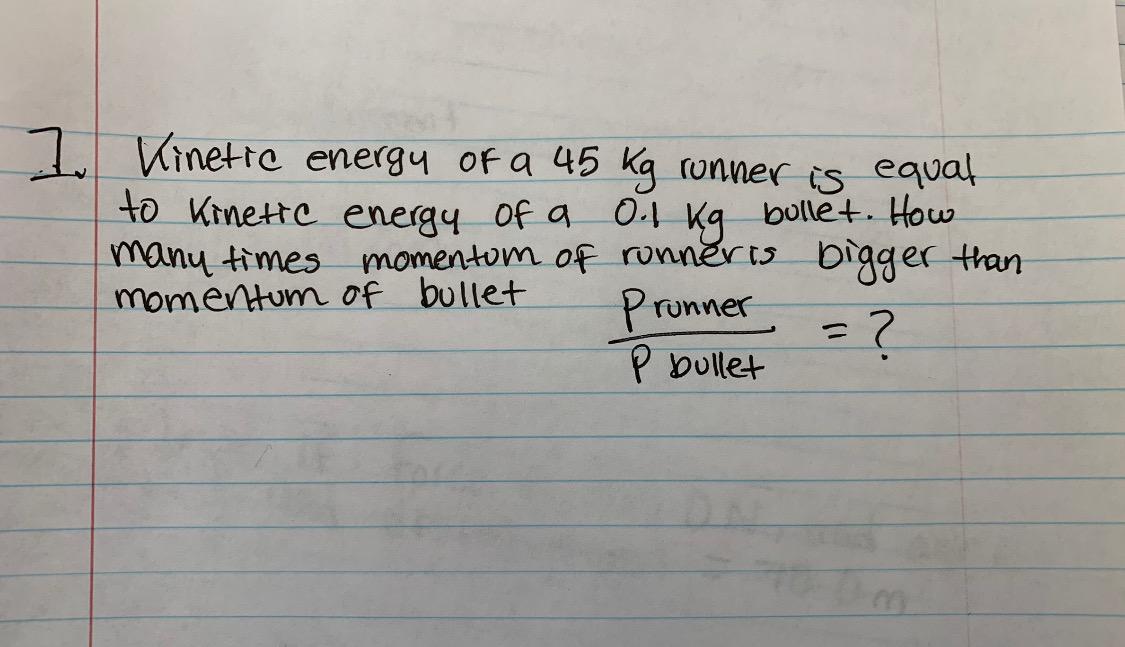 1. Kinetic energy of a 45 kg runner is equal
to kinetic energy of a 0.1 kg bullet. How
many times momentum of runner is bigger than
momentum of bullet
P runner
/ P bullet = ?